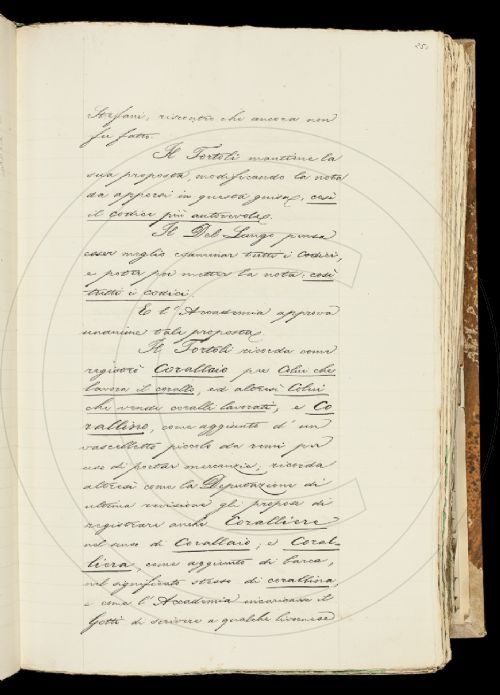 25.
Stefani, riscontro che ancora non
fu fatto.
Il Tortoli mantiene la
sua proposta, modificando la nota
da apporsi in questa guisa, così
il codice più autorevole.
Il Del Lungo pensa
esser meglio esaminar tutti i codici,
e poter poi metter la nota: così
tutti i codici.
E l'Accademia approva
unanime tale proposta.
Il Tortoli ricorda come
registrò Corallaio per Colui che
lavora il corallo, ed altresì Colui
che vende coralli lavorati, e Co
rallino, come aggiunto d'un
vascelletto piccolo da remi per
uso di portar mercanzie, ricorda
altresì come la Deputazione di
ultima revisione gli propose di
registrare anche Coralliere
nel senso di Corallaio; e Coral-
liera, come aggiunto di barca,
nel significato stesso di corallina,
e come l'Accademia incaricasse il
Gotti di scrivere a qualche livornese